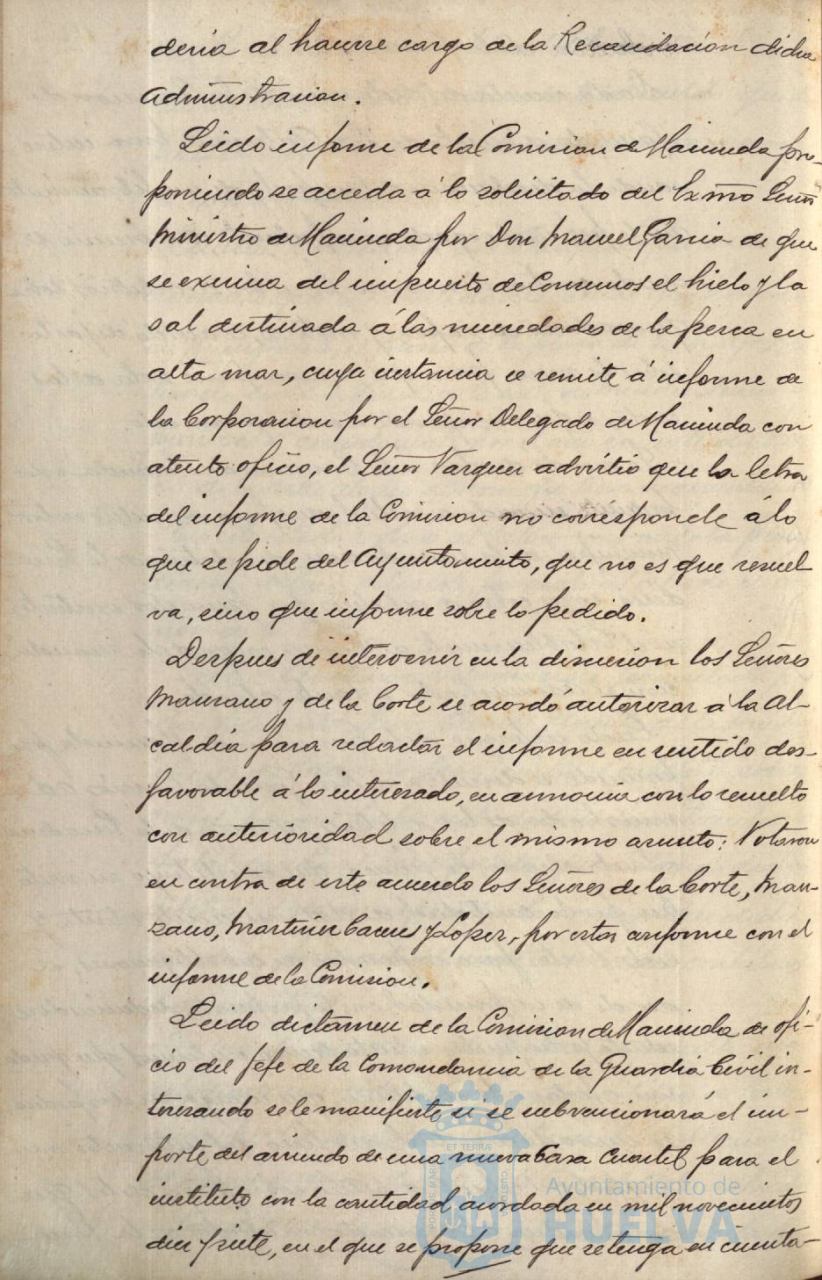 deria al hacerse cargo de la Recaudacion dicha
Administracion.
Leido informe de la Comision de Hacienda pro-
poniendo se acceda á lo solicitado del Exmo Señor
Ministro de Hacienda por Don Manuel Garcia de que
se exima del impuesto de Consumos el hielo y la
sal destinada á las necesidades de la pesca en
alta mar, cuya instancia se remite á informe de
la Corporacion por el Señor Delegado de Hacienda con
atento oficio, el Señor Vazquez advirtió que la letra
del informe de la Comision no corresponde á lo
que se pide del Ayuntamiento, que no es que resuel-
va, sino que informe sobre lo pedido.
Despues de intervenir en la discusion los Señores
Manzano y de la Corte se acordó autorizar á la Al-
caldía para redactar el informe en sentido des-
favorable á lo interesado, en armonia con lo resuelto
con anterioridad sobre el mismo asunto: Votaron
en contra de este acuerdo los Señores de la Corte, Man-
zano, Martin Cacus y Lopez, por estar conforme con el
informe de la Comision.
Leido dictamen de la Comision de Hacienda de ofi-
cio del Jefe de la Comandancia de la Guardia Civil in-
teresando se le manifieste si se subvencionará el im-
porte del arriendo de una nueva Casa Cuartel para el
instituto con la cantidad acordada en mil novecientos
diez y siete, en el que se propone que se tenga en cuenta-
Ayuntamiento de
HUELVA